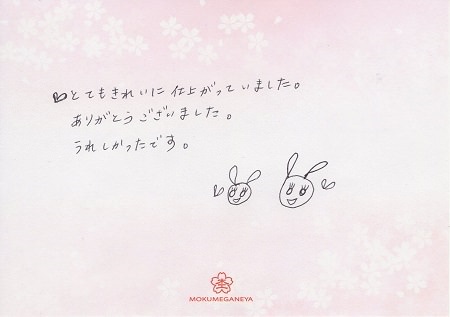 とてもきれいに仕上がっていました。
ありがとうございました。
うれしかったです。
MOKUMEGANEYA